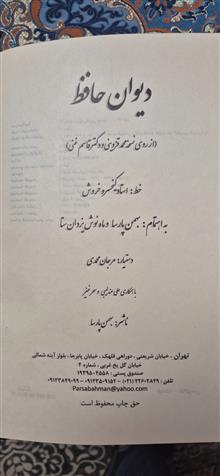 دیوان حافظ
(از روی نسخه محمد قزوینی و دکتر قاسم غنی)
خط: استاد کیخسرو خروش
به اهتمام: بهمن پارسا و ماه نوش یزدان ستا
دستیار: مرجان محمدی
با همکاری علی خطیبی و سحر
ناشر: بهمن پارسا
تهران . خیابان شریعتی، دوراهی قلهک، خیابان پابرجا، بلوار آینه شمالی
خیابان گل یخ غربی ، شماره ۴
صندوق پستی : ۱۹۳۹۵-۴۵۵۸
تلفن : ۲۲۶۰۲۸۴۹ (۰۲۱) - ۰۹۱۲۳۵۰۹۱۵۲ - ۰۹۱۲۳۸۴۹۰۹۹
Parsabahman@yahoo.com
حق چاپ محفوظ است